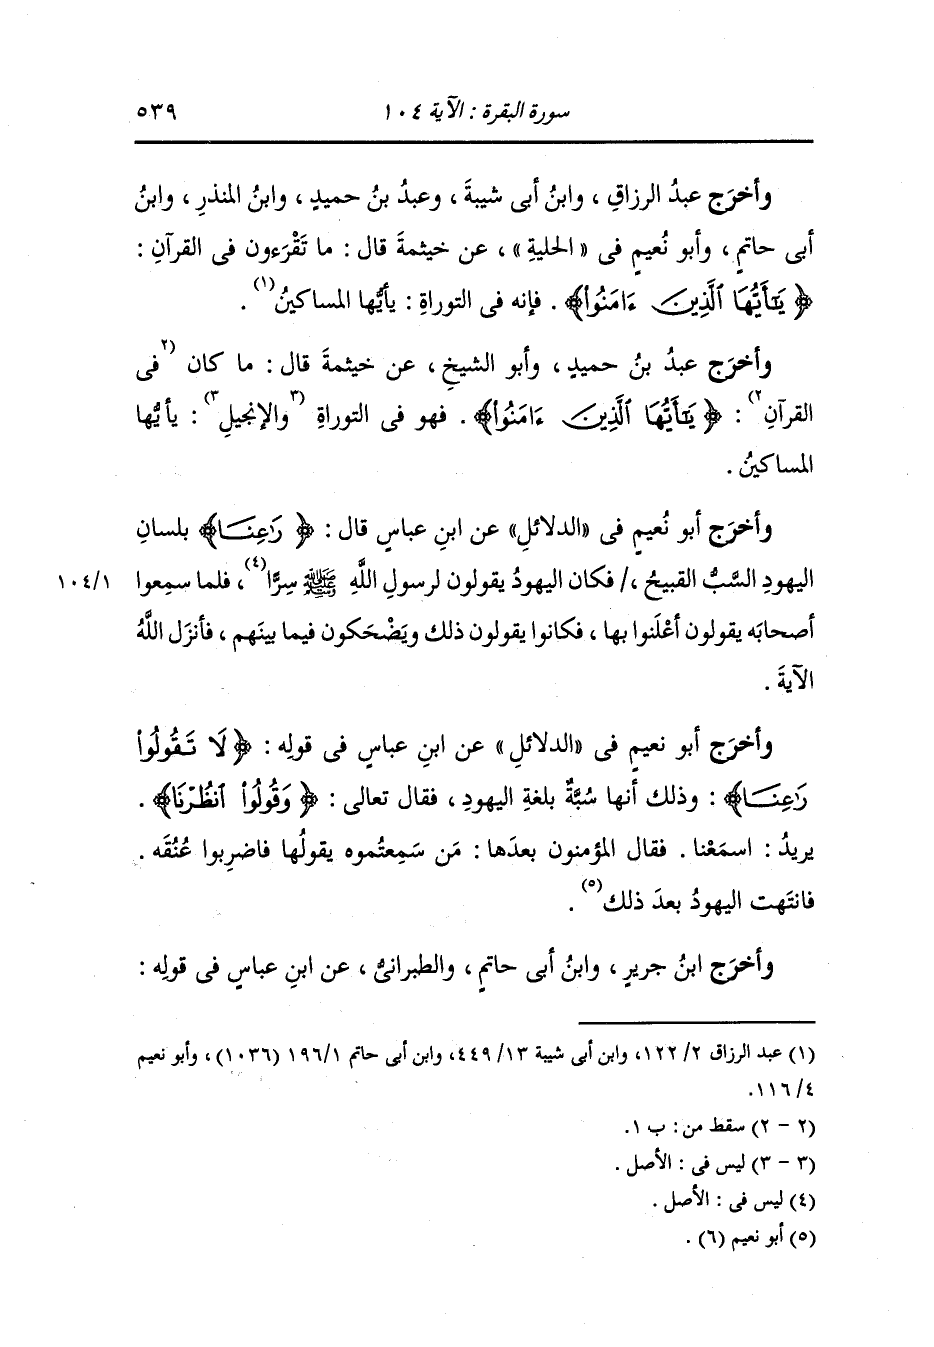 سورة البقرة : الآية ١٠٤ ٥٣٩
وأخرَج عبدُ الرزاقِ ، وابنُ أبى شيبةَ ، وعبدُ بنُ حميدٍ ، وابنُ المنذرِ ، وابنُ
أبى حاتمٍ ، وأبو نُعيمٍ فى « الحليةِ » ، عن خيثمةَ قال : ما تَقْرَءون فى القرآنِ :
﴿ يَٰٓأَيُّهَا ٱلَّذِينَ ءَامَنُوا۟﴾ . فإنه فى التوراةِ : يأيُّها المساكينُ(١) .
وأخرَج عبدُ بنُ حميدٍ ، وأبو الشيخِ ، عن خيثمةَ قال : ما كان (٢فى
القرآنِ٢) : ﴿ يَٰٓأَيُّهَا ٱلَّذِينَ ءَامَنُوا۟﴾ . فهو فى التوراةِ (٣والإنجيلِ٣) : يأيُّها
المساكينُ .
وأخرَج أبو نُعيمٍ فى «الدلائلِ» عن ابنِ عباسٍ قال : ﴿ رَٰعِنَا﴾ بلسانِ
اليهودِ السَّبُّ القبيحُ ،/ فكان اليهودُ يقولون لرسولِ اللَّهِ ﷺ سِرًّا(٤)، فلما سمِعوا ١٠٤/١
أصحابَه يقولون أعْلَنوا بها ، فكانوا يقولون ذلك ويَضْحَكون فيما بينَهم ، فأنزَل اللَّهُ
الآيةَ .
وأخرَج أبو نعيمٍ فى «الدلائلِ» عن ابنِ عباسٍ فى قولِه : ﴿ لَا تَقُولُوا۟
رَٰعِنَا﴾ : وذلك أنها سُبَّةٌ بلغةِ اليهودِ ، فقال تعالى : ﴿ وَقُولُوا۟ ٱنظُرْنَا﴾ .
يريدُ : اسمَعْنا . فقال المؤمنون بعدَها : مَن سَمِعتُموه يقولُها فاضرِبوا عُنُقَه .
فانتَهت اليهودُ بعدَ ذلك(٥) .
وأخرَج ابنُ جريرٍ ، وابنُ أبى حاتمٍ ، والطبرانىُّ ، عن ابنِ عباسٍ فى قولِه :
(١) عبد الرزاق ٢/ ١٢٢، وابن أبى شيبة ١٣/ ٤٤٩، وابن أبى حاتم ١٩٦/١ (١٠٣٦) ، وأبو نعيم
٤/ ١١٦.
(٢ - ٢) سقط من : ب ١.
(٣ - ٣) ليس فى : الأصل .
(٤) ليس فى : الأصل .
(٥) أبو نعيم (٦) .